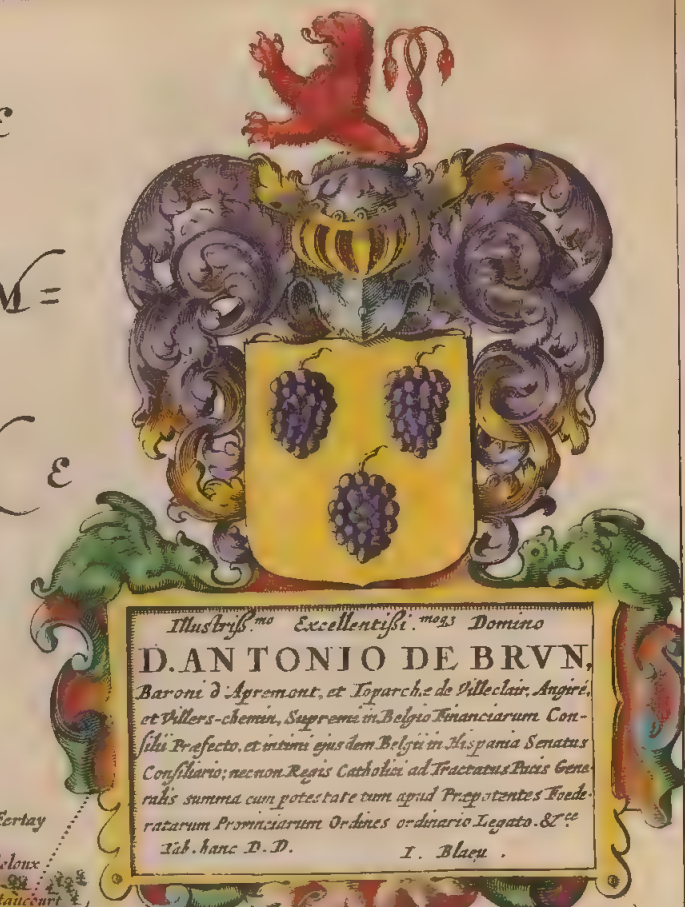 ε
M =
ε
Illustriſs.mo Excellentiſsi.moq3 Domino
D. ANTONIO DE BRVN,
Baroni d'Apremont, et Toparchæ de Villeclair, Angiré,
et Villers-chemin, Supremi in Belgio Financiarum Con-
ſilii Præfecto, et intimi ejusdem Belgii in Hispania Senatus
Conſiliario; necnon Regis Catholici ad Tractatus Pacis Gene-
ralis summa cum potestate tum apud Præpotentes Foede-
ratarum Provinciarum Ordines ordinario Legato. &ce
Tab. hanc D. D. I. Blaeu.
Fertay
eloux
taucourt